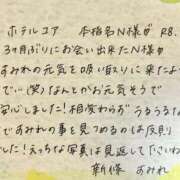 ホテルコア 本指名N様♂ R8.
3ヶ月ぶりにお会い出来たN様♂
すみれの元気を吸い取りに来たよ
でい(笑)なんとかお元気そうで
安心しました!相変わらずうるうるな
ですみれの事を見つめるのは反則
した!えっちな写真は見返してくださいね
新條 すみれ